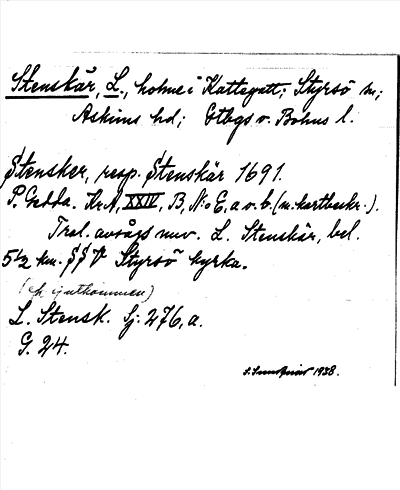 Stenskär, L., holme i Kattegatt; Styrsö sn;
Askims hd; Gtbgs o. Bohus l.
Stensker, resp. Stenskär 1691.
P. Gedda. KrA, XXIV, B, N:o E, a o. b. (m. kartbeskr.).
Trol. avsågs nuv. L. Stenskär, bel.
5 1/2 km. SSV Styrsö kyrka.
L. Stensk. Sj: 276, a.
G. 24.
1938.